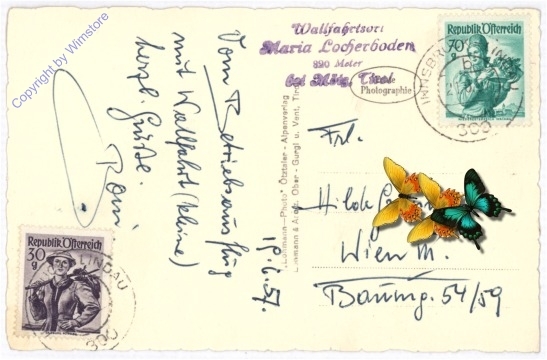 Copyright by Wimstore
Vom Betriebsausflug
mit Wallfahrt (kleine)
herzl. Grüße.
18.6.57.
Wallfahrtsort
Maria Locherboden
890 Meter
bei Mötz, Tirol
Photographie
"Lohmann-Photo" Ötztaler - Alpenverlag
Lohmann & Arnz, Ober - Gurgl u. Vent, Tirol
Republik Österreich
70
g
INNSBRUCK LINDAU
300
Frl.
Hilde
Wien III.
Baumg. 54/59
Republik Österreich
30
g
LINDAU
300